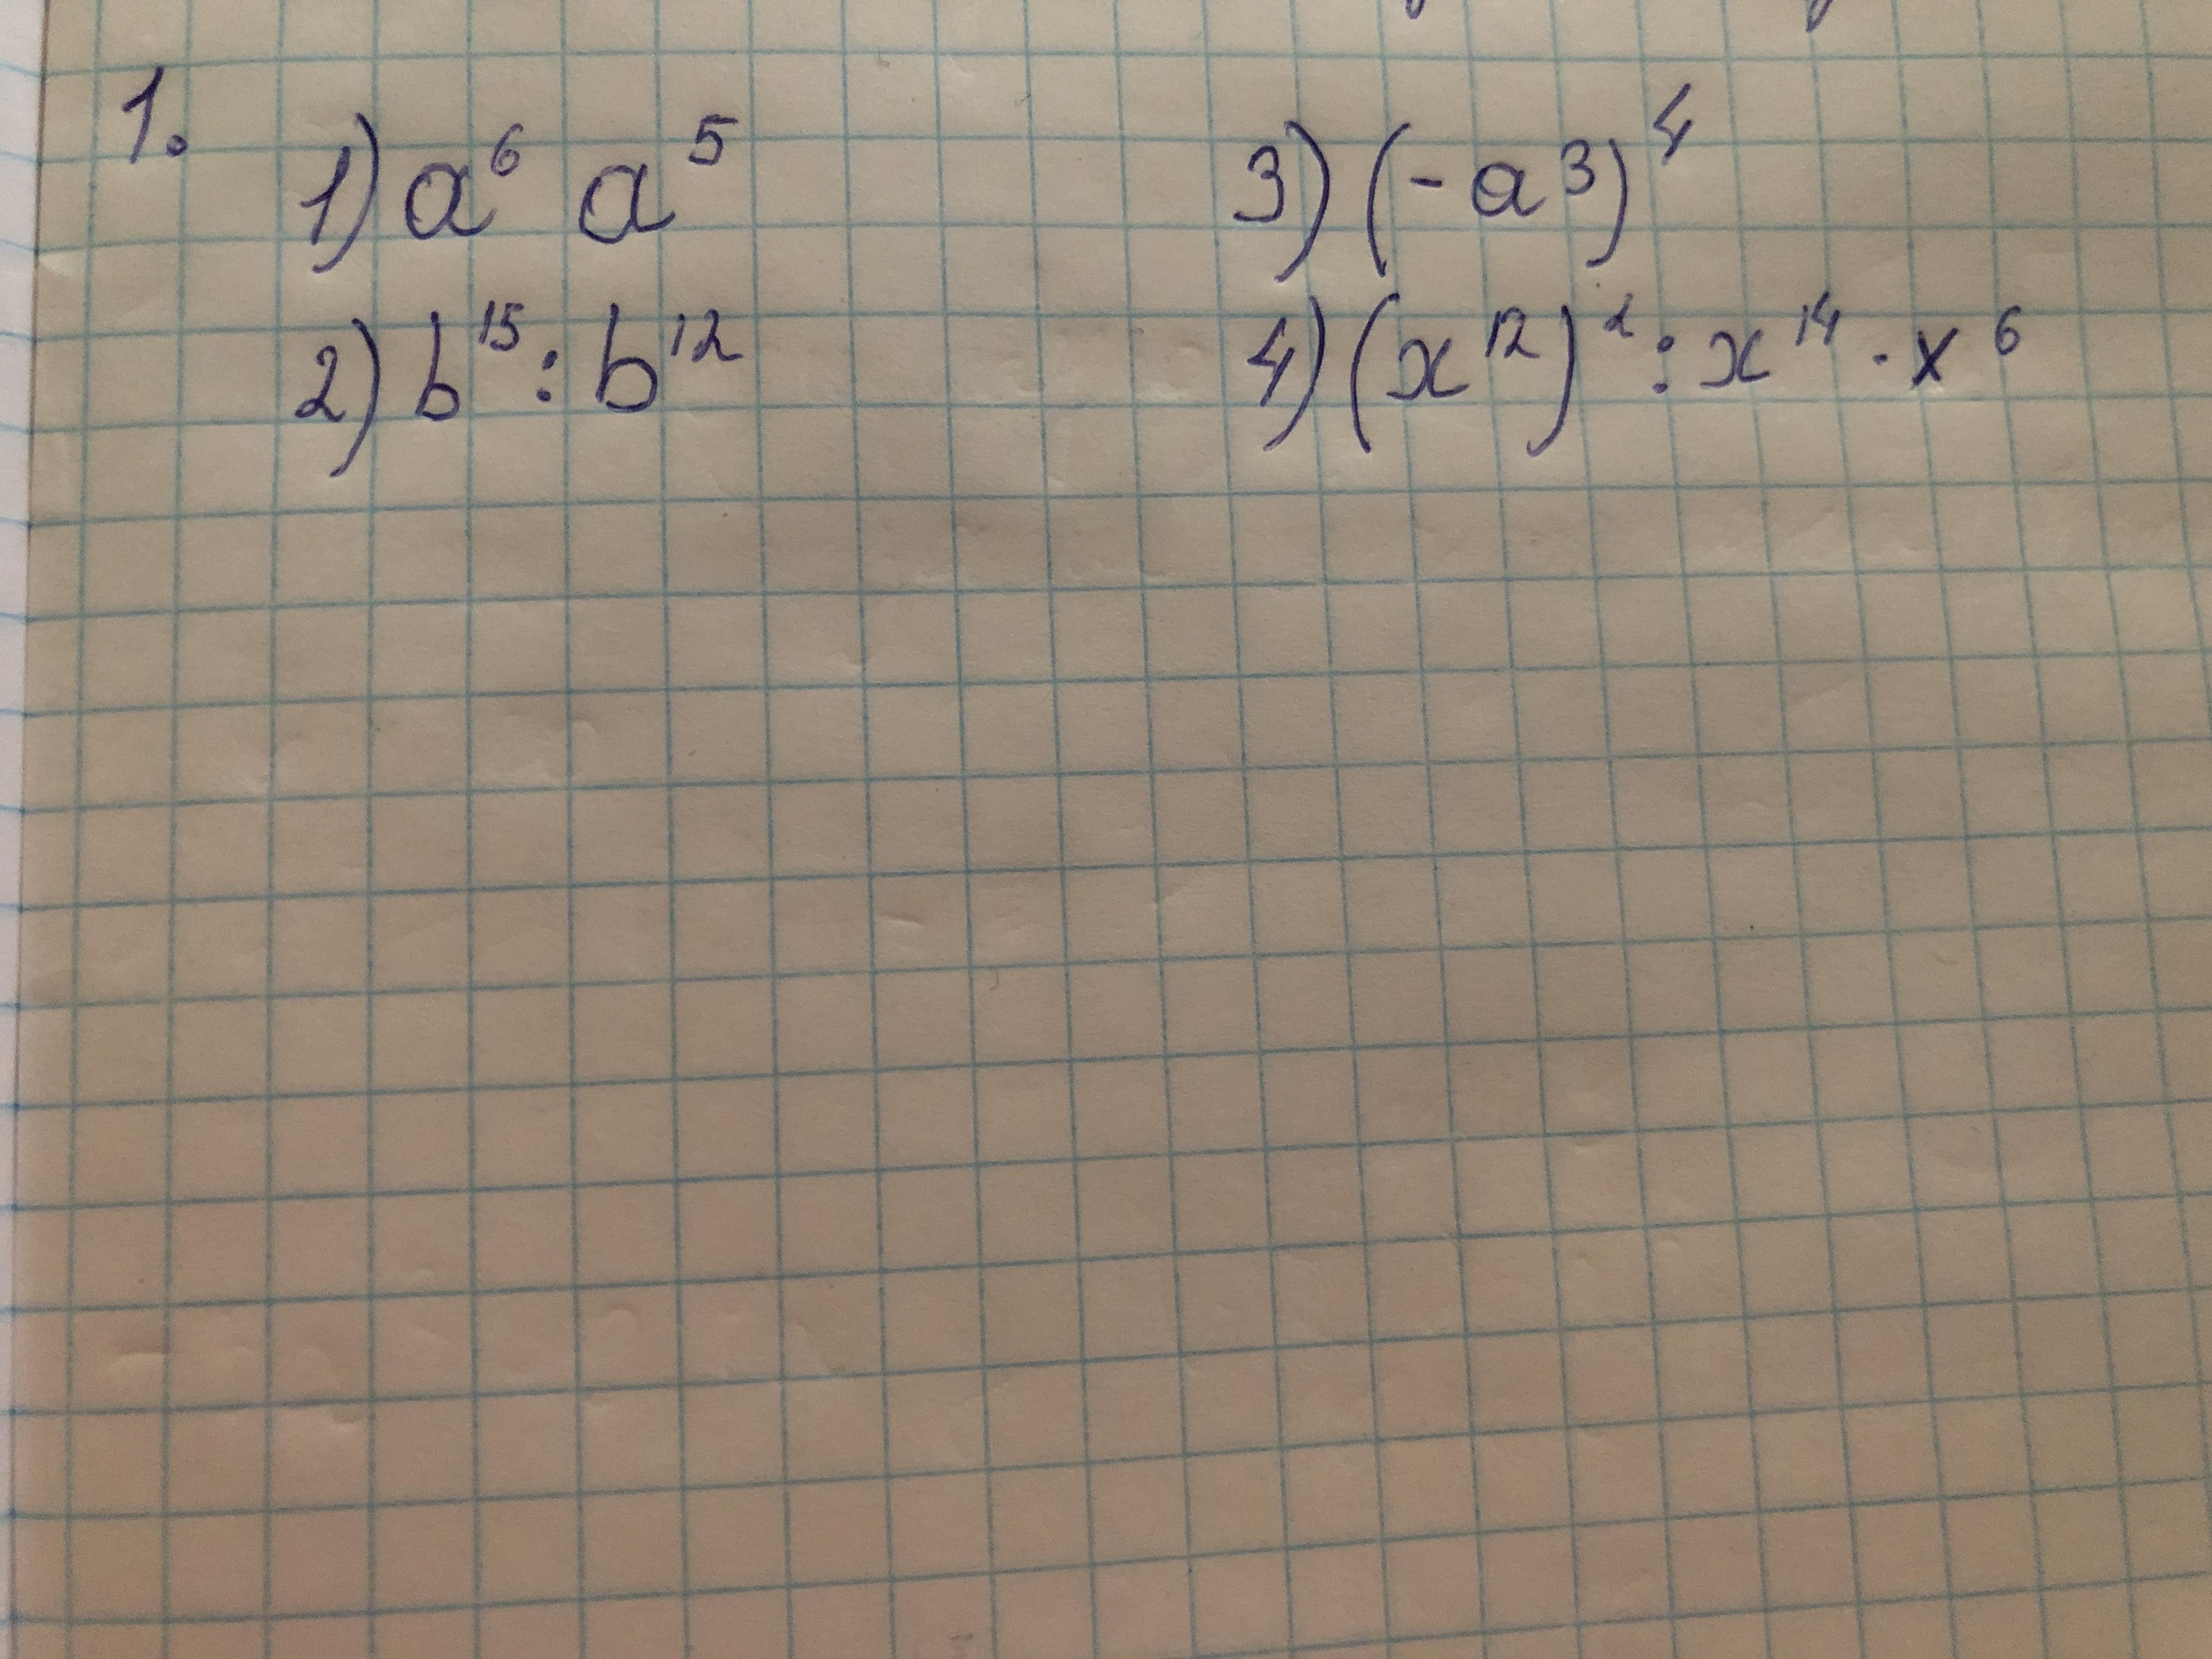 1.
1) a⁶ a⁵
2) b¹⁵ : b¹²
3) (-a³)⁴
4) (x¹²)² : x¹⁴ · x⁶